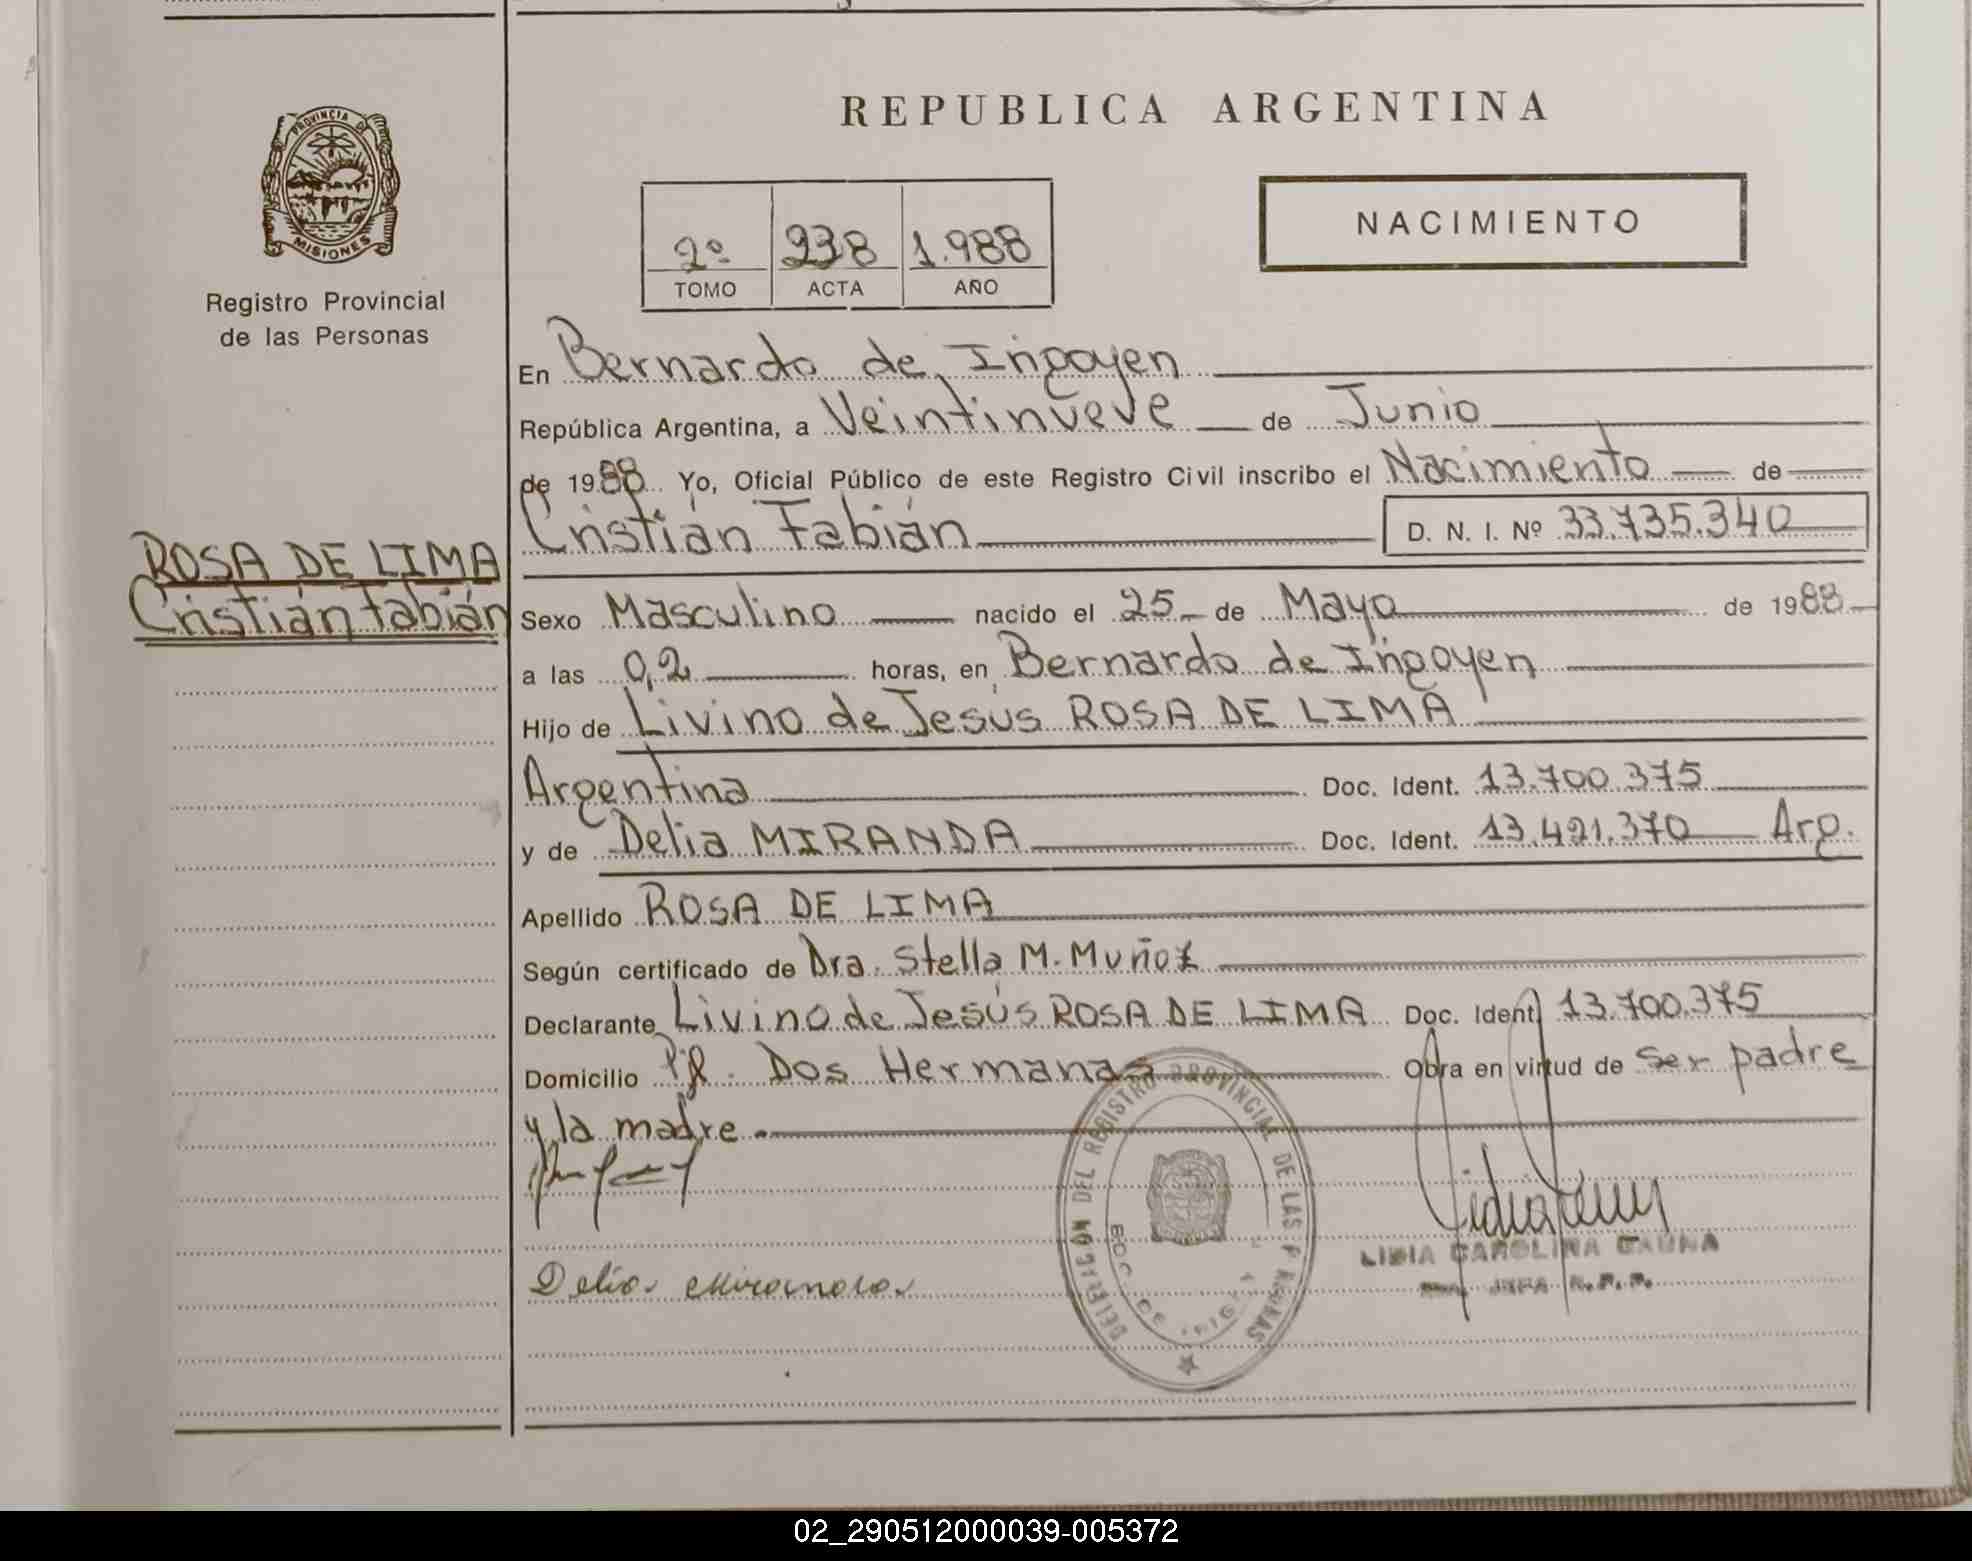 REPUBLICA ARGENTINA
PROVINCIA DE MISIONES
Registro Provincial
de las Personas
2º 238 1.988
TOMO ACTA AÑO
NACIMIENTO
En Bernardo de Irigoyen
República Argentina, a Veintinueve de Junio
de 1988 Yo, Oficial Público de este Registro Civil inscribo el Nacimiento de
Cristián Fabián D. N. I. Nº 33.735.340
ROSA DE LIMA
Cristián Fabián
Sexo Masculino nacido el 25 de Mayo de 1988
a las 0,2 horas, en Bernardo de Irigoyen
Hijo de Livino de Jesus ROSA DE LIMA
Argentina Doc. Ident. 13.700.375
y de Delia MIRANDA Doc. Ident. 13.421.370 Arg.
Apellido ROSA DE LIMA
Según certificado de Dra. Stella M. Muñoz
Declarante Livino de Jesús ROSA DE LIMA Doc. Ident. 13.700.375
Domicilio Pje. Dos Hermanas Obra en virtud de ser padre
y la madre.
DELEGACION DEL REGISTRO PROVINCIAL DE LAS PERSONAS
LIDIA CAROLINA GAUNA
JEFA R.P.P.
Delia Miranda
02_290512000039-005372